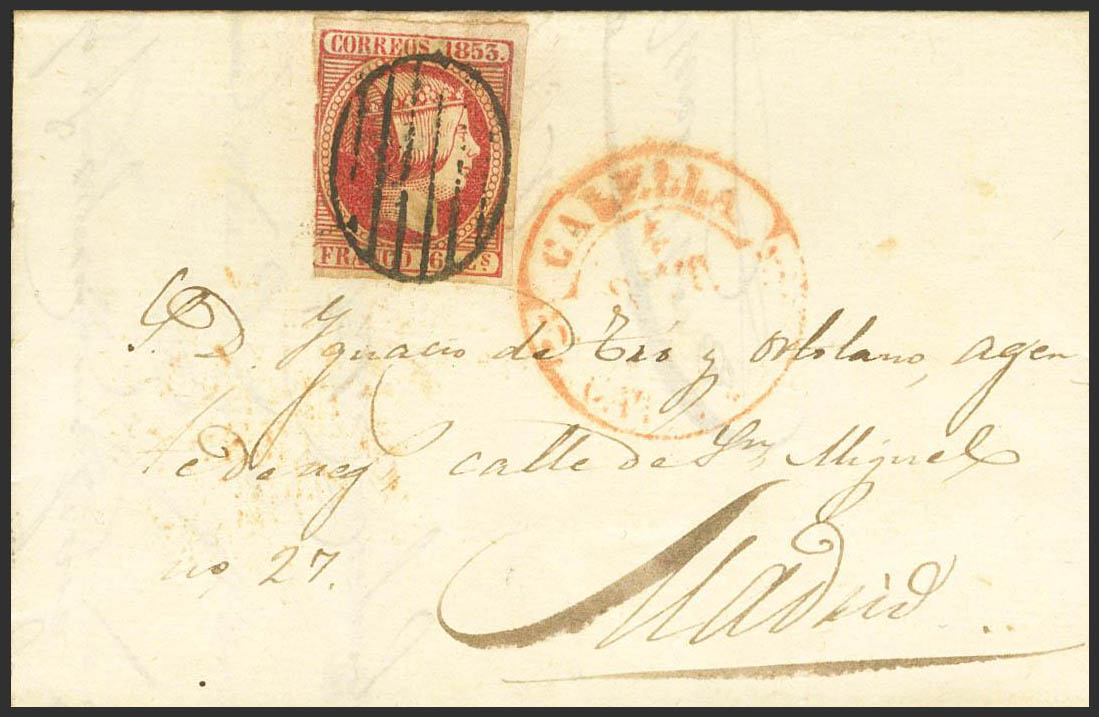 CORREOS 1853.
FRANCO 6 Cs.
CALELLA
CAT
S. D. Ignacio de Tró y Ortolano, agen
te de neg calle de Sn Miguel
no 27.
Madrid